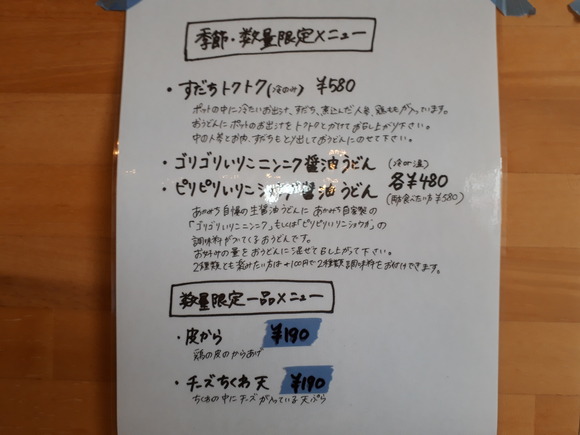 季節・数量限定メニュー
・すだちトクトク(冷のみ) ¥580
ポットの中に冷たいお出汁、すだち、煮込んだ人参、鶏ももが入っています。
おうどんにポットのお出汁をトクトクとかけてお召し上がり下さい。
中の人参とお肉、すだちもとり出しておうどんにのせて下さい。
・ゴリゴリいりニンニク醤油うどん (冷or温)
・ピリピリいりショウガ醤油うどん 各¥480
(両方食べたい方¥580)
あかみち自慢の生醤油うどんにあかみち自家製の
「ゴリゴリいりニンニク」もしくは「ピリピリいりショウガ」の
調味料がついてくるおうどんです。
お好みの量をおうどんに混ぜて召し上がって下さい。
2種類とも頼みたい方は+100円で2種類調味料をお付けできます。
数量限定一品メニュー
・皮から ¥190
鶏の皮のからあげ
・チーズちくわ天 ¥190
ちくわの中にチーズが入っている天ぷら